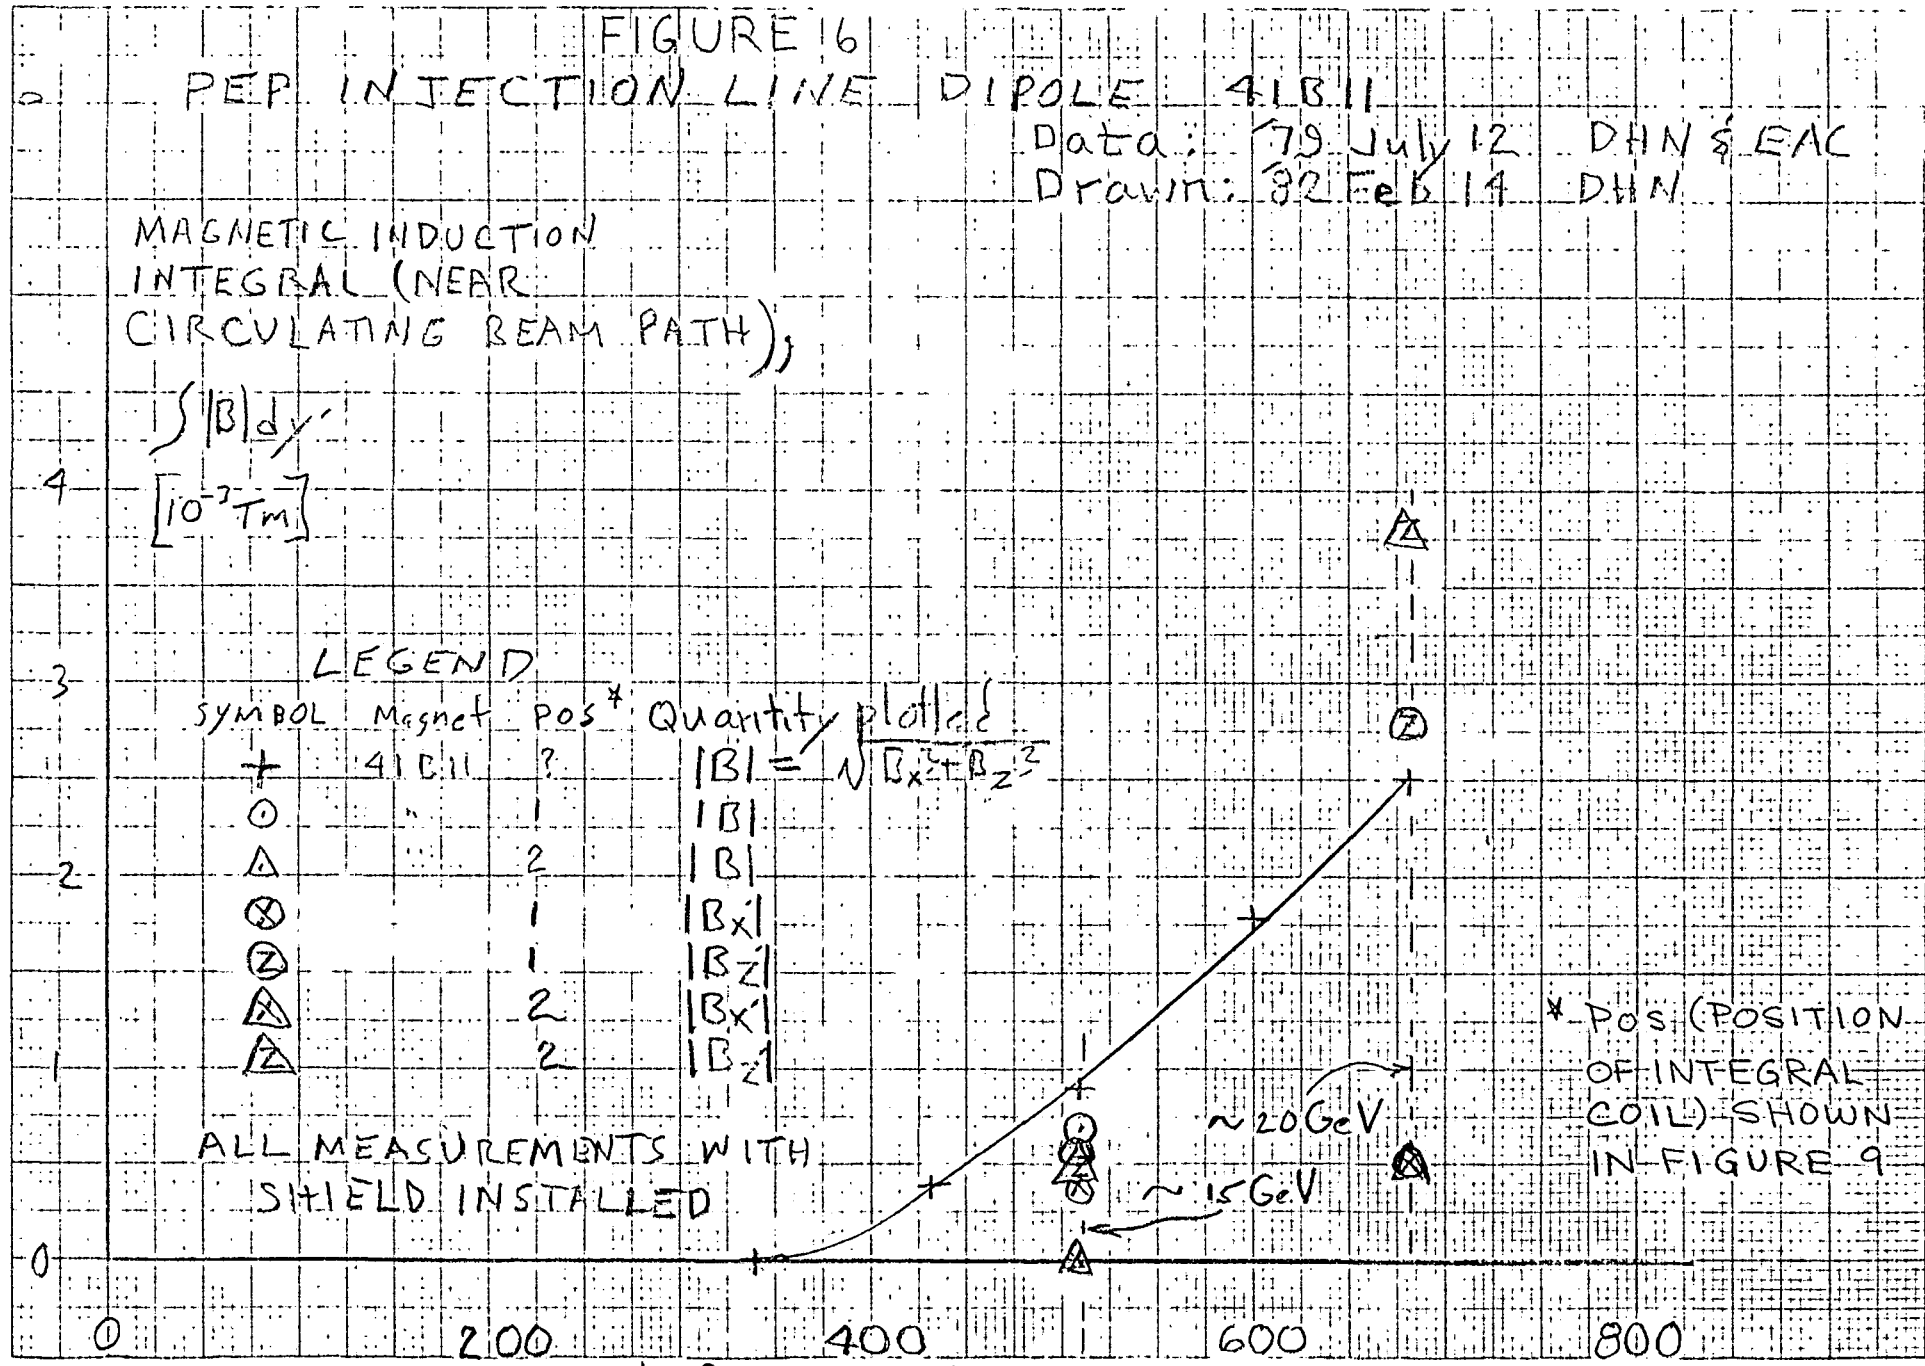 FIGURE 16
PEP INJECTION LINE DIPOLE 41B11
Data: '79 July 12 DHN & EAC
Drawn: '82 Feb 14 DHN
MAGNETIC INDUCTION
INTEGRAL (NEAR
CIRCULATING BEAM PATH),
∫|B|dy'
[10⁻³ Tm]
4
3
2
1
0
LEGEND
SYMBOL Magnet POS* Quantity plotted
+ 41B11 ? |B| = √Bx²+Bz²
⊙ " 1 |B|
△ " 2 |B|
ⓧ 1 |Bx'|
ⓩ 1 |Bz'|
X 2 |Bx'|
Z 2 |Bz'|
ALL MEASUREMENTS WITH
SHIELD INSTALLED
~20GeV
~15GeV
* POS (POSITION
OF INTEGRAL
COIL) SHOWN
IN FIGURE 9
0 200 400 600 800